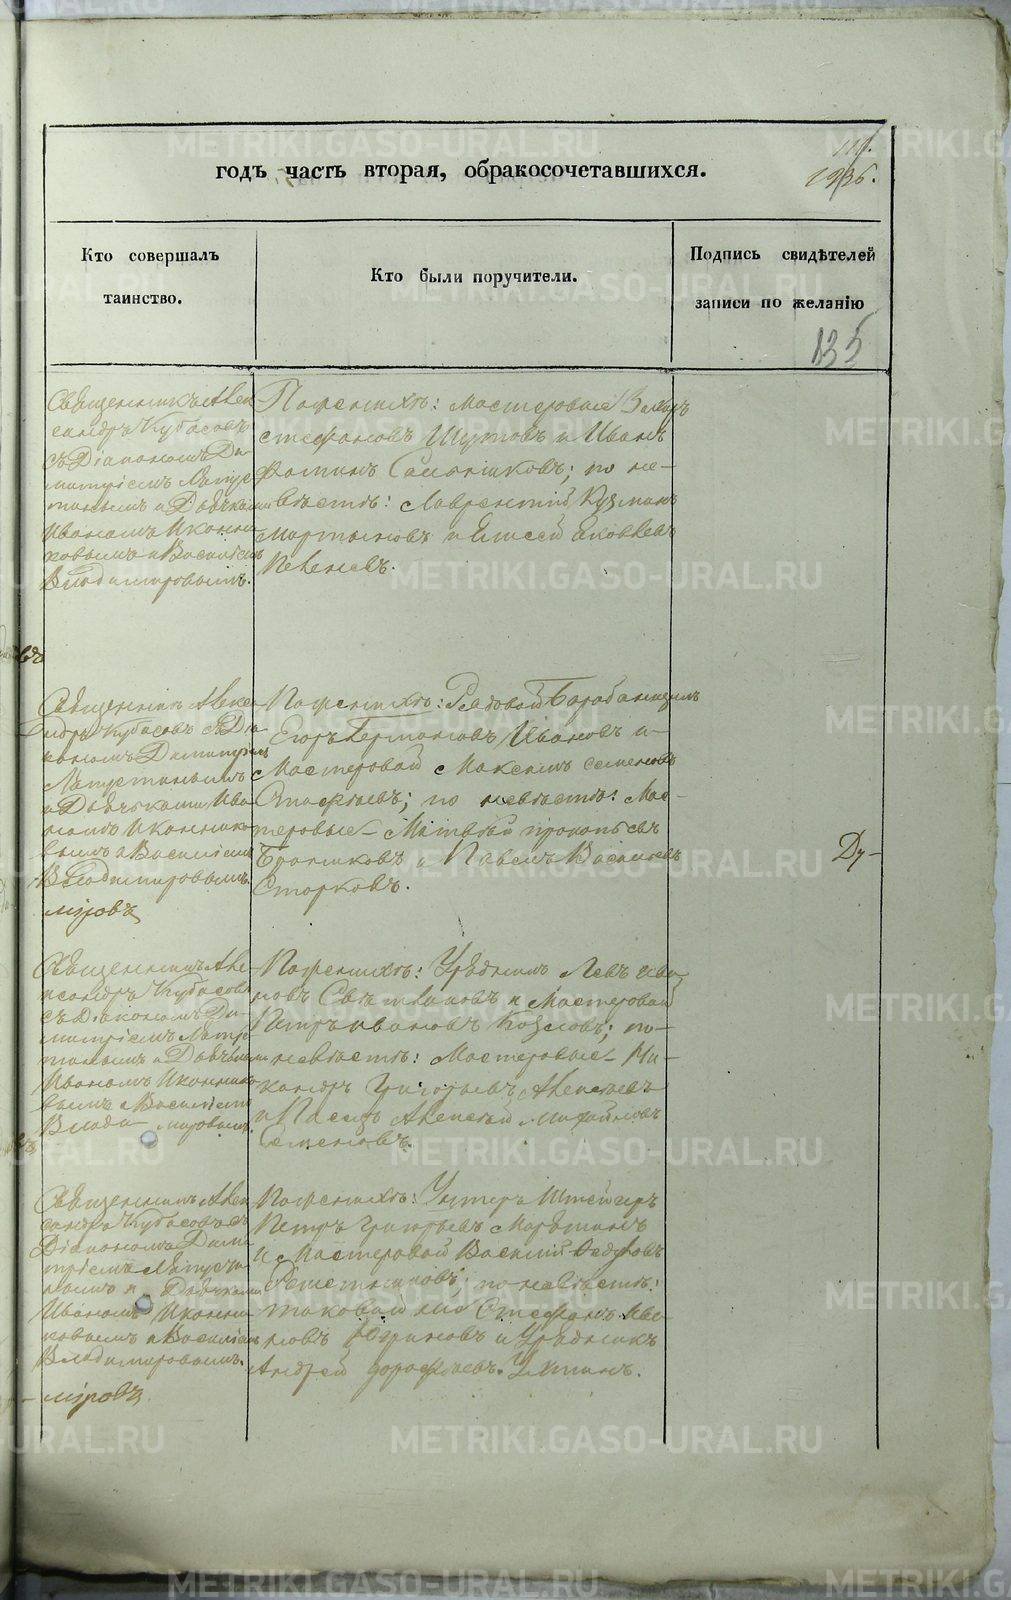 годъ часть вторая, обракосочетавшихся.
Кто совершалъ
таинство.
Кто были поручители.
Подпись свидѣтелей
записи по желанію
135
Священникъ Алек
сандръ Кубасовъ
съ Діакономъ Ди
митріемъ
и Дьячками
Иваномъ Иконни
ковымъ и Василіемъ
Владимировымъ.
По женихѣ: мастеровые Захаръ
Стефановъ Шутовъ и Иванъ
Фоминъ по не-
вѣстѣ: Лаврентій Кузминъ
Мартыновъ и Елисей Яковлевъ
Священникъ Алекса
ндръ Кубасовъ съ Діа
кономъ Димитріемъ
и Дьячками Ива
номъ Иконнико
вымъ и Василіемъ
Владимировымъ.
міровъ
По женихѣ: Рядовой Барабанщикъ
Егоръ Ивановъ и
Мастеровой Максимъ Семеновъ
по невѣстѣ: Мас-
теровые Матвѣй Прокопьевъ
и Павелъ Васильевъ
Сторковъ.
Ду-
Священникъ Але
ксандръ Кубасовъ
съ Діакономъ Ди-
митріемъ
и Дьячками
Иваномъ Иконнико
вымъ и Василіемъ
Влади-мировымъ.
По женихѣ: Урядникъ Левъ Ива
новъ Свѣтлановъ и Мастеровой
Петръ Ивановъ Козловъ; по-
невѣстѣ: Мастеровые Ни-
кандръ Григорьевъ Алексѣевъ
и Писецъ Алексѣй Михайловъ
Семеновъ.
Священникъ Алек
сандръ Кубасовъ съ
Діакономъ Дими
тріемъ
и Дьячками
Иваномъ Иконни
ковымъ и Василіемъ
Владимировымъ.
міровъ
По женихѣ: Унтеръ Штейгеръ
Петръ Григорьевъ
и Мастеровой Василій Федоровъ
Решетниковъ; по невѣстѣ:
таковой же Стефанъ Ива
новъ и Урядникъ
Андрей Дорофѣевъ
METRIKI.GASO-URAL.RU